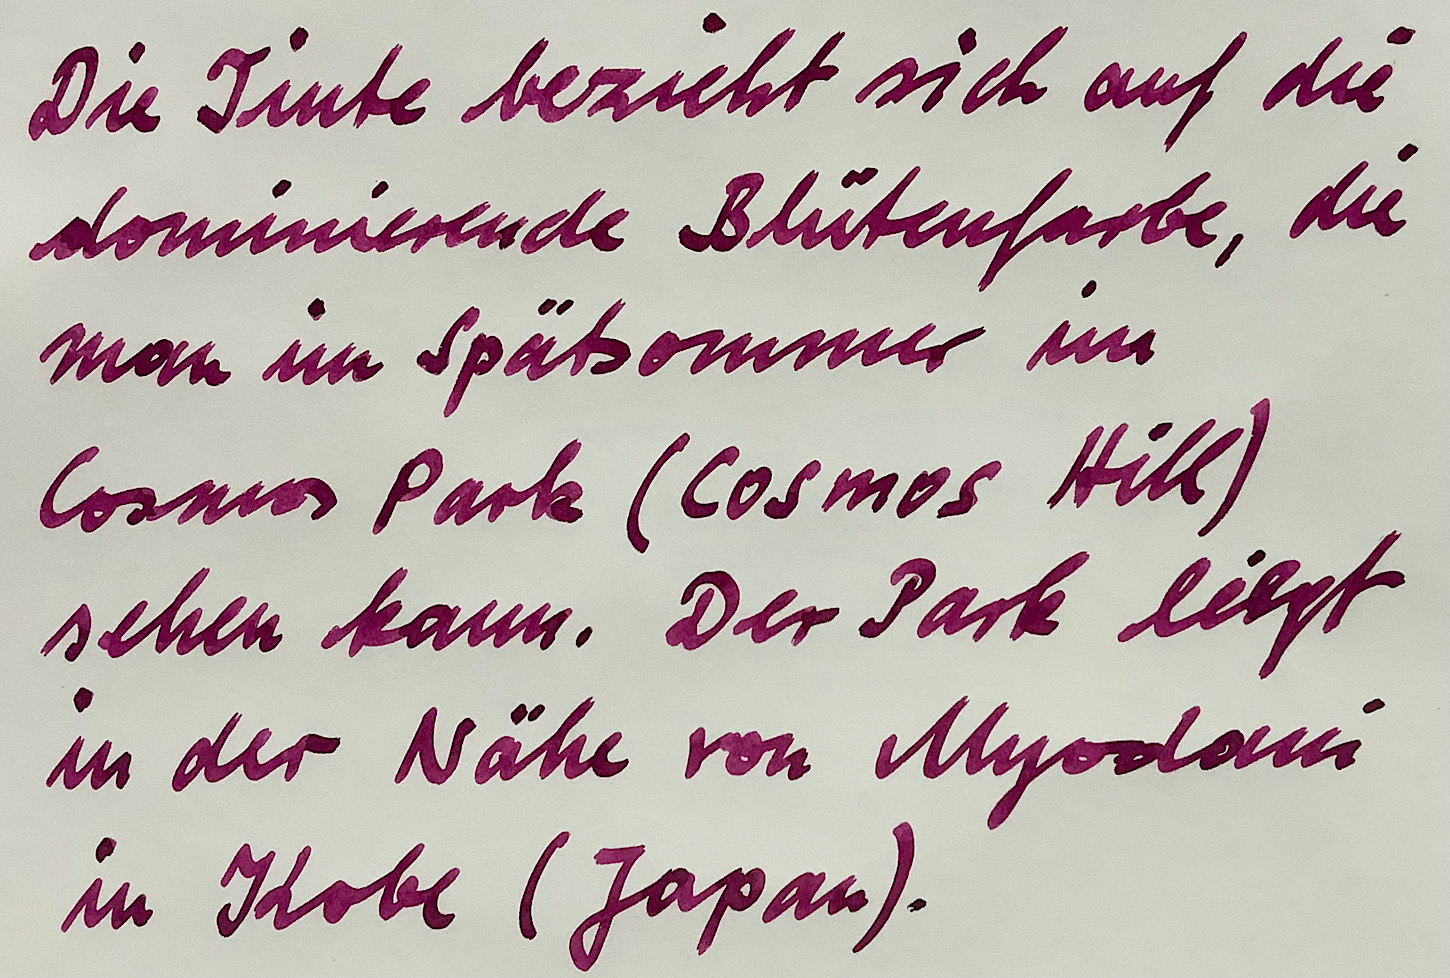 Die Tinte bezieht sich auf die
dominierende Blütenfarbe, die
man im Spätsommer im
Cosmos Park (Cosmos Hill)
sehen kann. Der Park liegt
in der Nähe von Myodani
in Kobe (Japan).